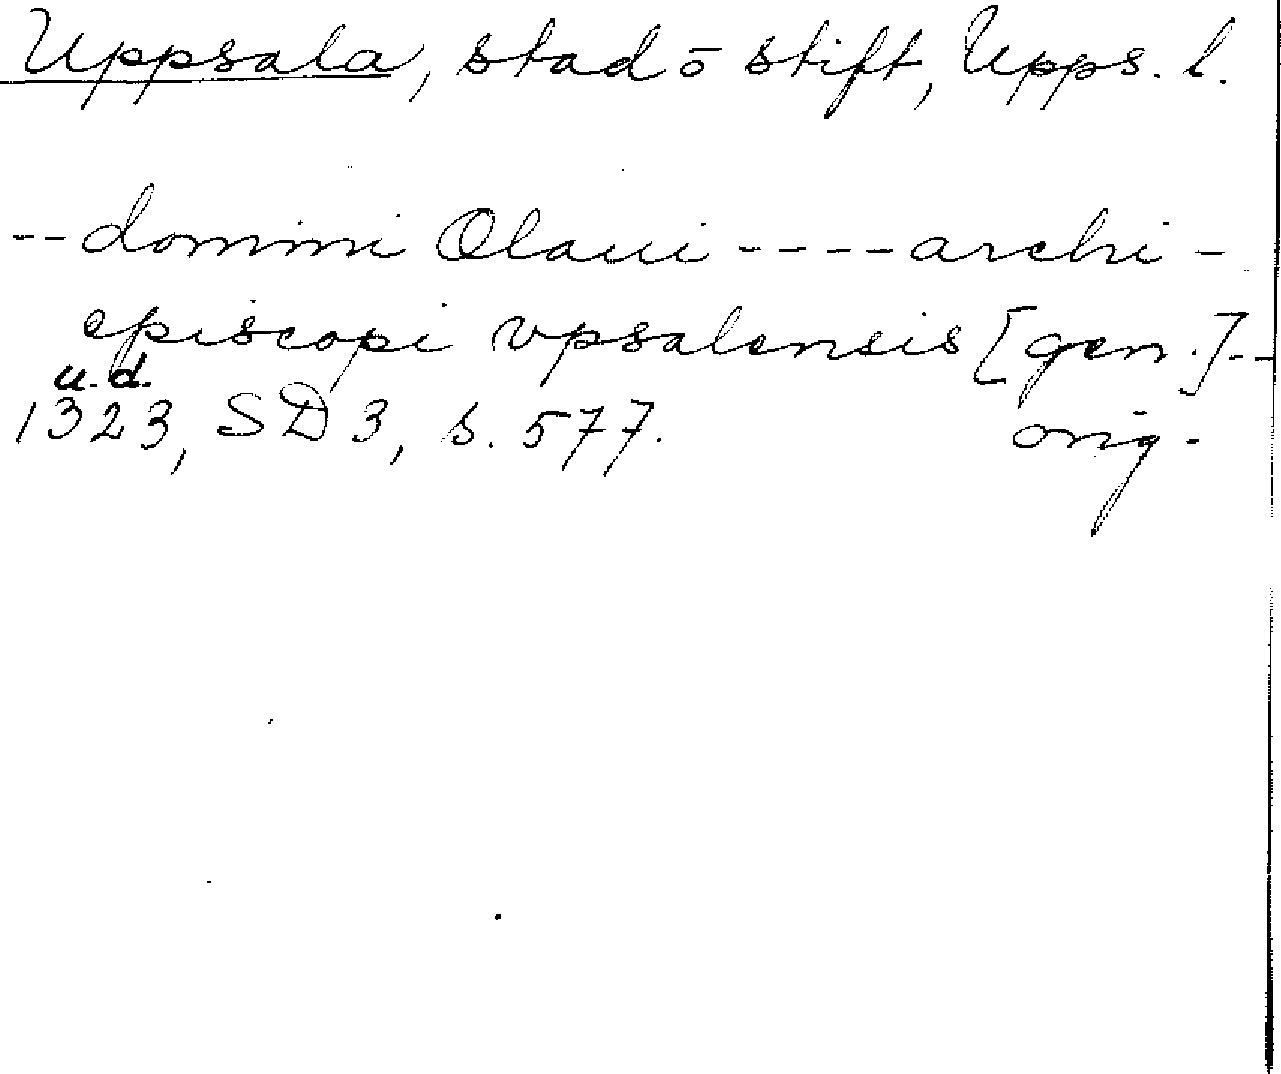 Uppsala, stad ō stift, Upps. l.
-- domini Olaui ---- archi-
episcopi vpsalensis [gen.]--
u.d.
1323, SD 3, s. 577. orig.